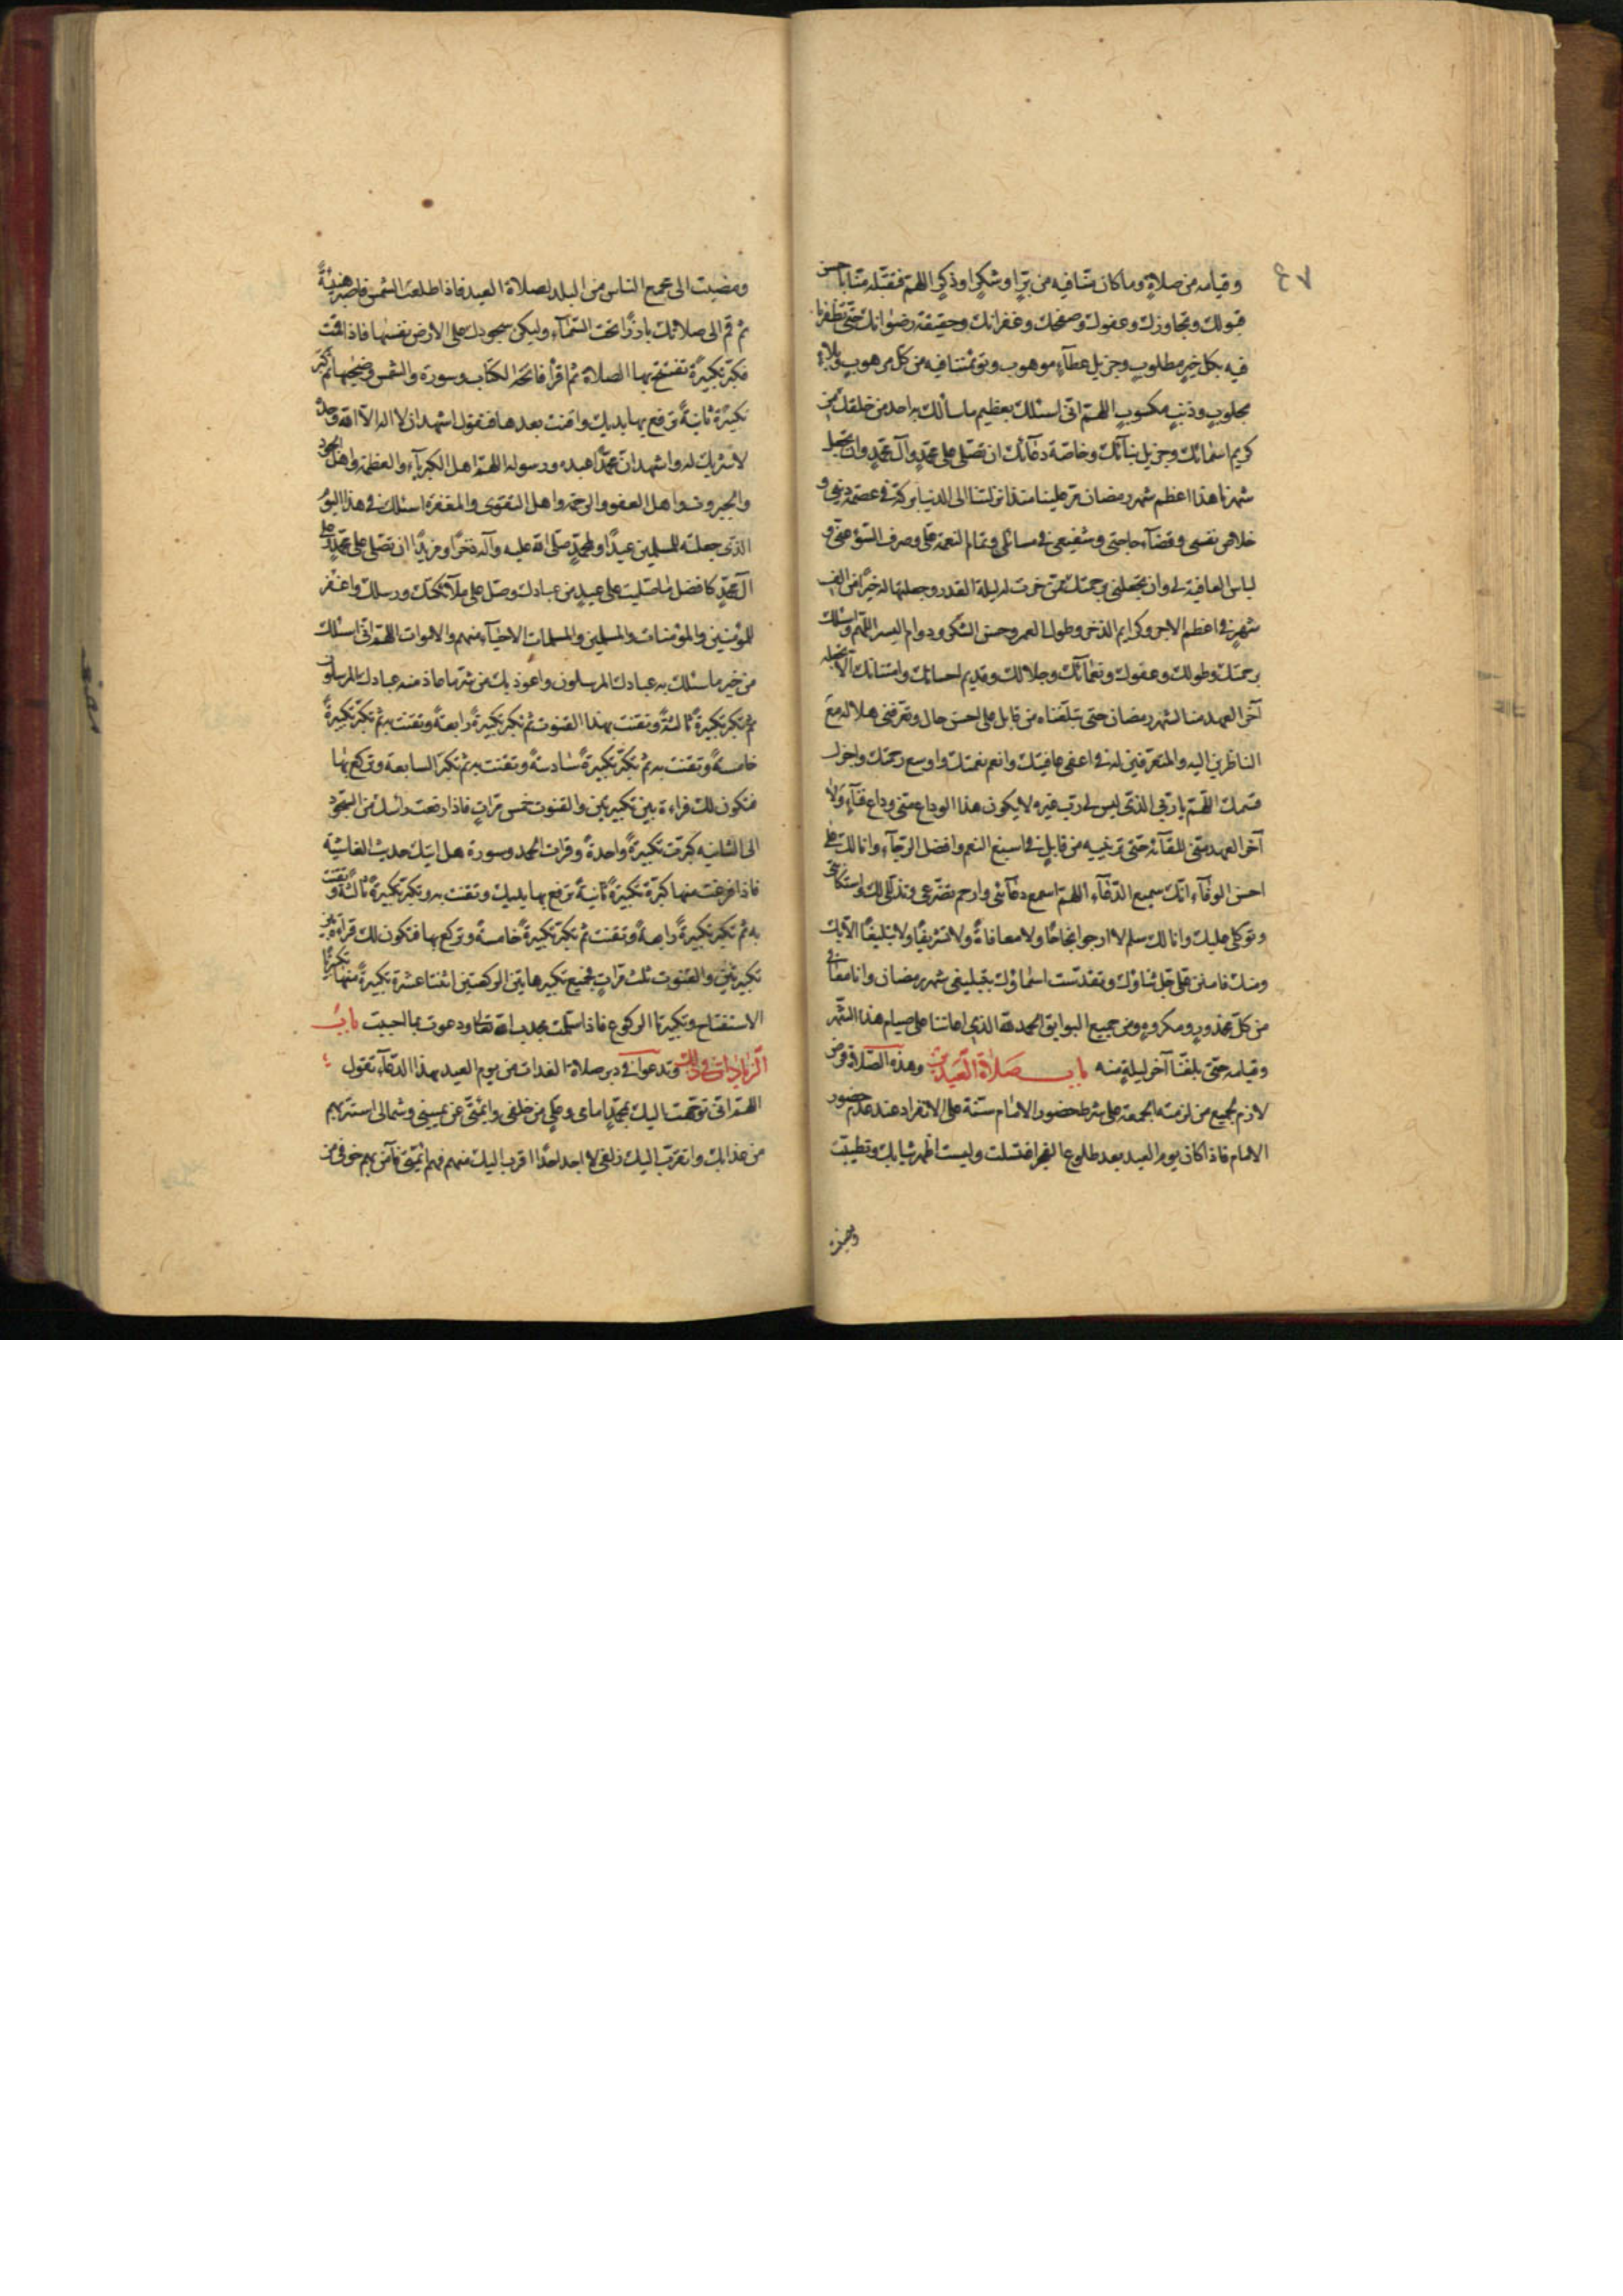 ٧٤
وقيامه من صلاةٍ وما كان منّا فيه من برٍّ او شكرٍ او ذكرٍ اللهمّ فتقبّله منّا باحسن
قبولك وتجاوزك وعفوك وصفحك وغفرانك وحقيقة رضوانك حتّى تظفرنا
فيه بكل خيرٍ مطلوبٍ وجزيل عطآءٍ موهوب وتؤمننا فيه من كل مرهوبٍ وبلاءٍ
مجلوبٍ وذنبٍ مكسوبٍ اللهمّ انّى اسئلك بعظيم ما سألك به احد من خلقك من
كريم اسمائك وجزيل ثنآئك وخاصّة دعآئك ان تصلّى على محمّدٍ وآل محمّدٍ وان تجعل
شهرنا هذا اعظم شهر رمضان مرّ علينا منذ انزلتنا الى الدنيا بركة فى عصمة دينى و
خلاص نفسى وقضآء حاجتى وشفيعى فى مسائلى وتمام النعمة علىّ وصرف السّوء عنّى و
لباس العافية لى وان تجعلنى برحمتك ممّن خرت له ليلة القدر وجعلتها له خيراً من الف
شهرٍ فى اعظم الاجر وكرايم الذخر وطول العمر وحسن الشكر ودوام اليسر اللّهمّ واسئلك
برحمتك وطولك وعفوك ونعمآئك وجلالك وقديم احسانك وامتنانك الّا تجعله
آخر العهد منا لشهر رمضان حتى تبلّغناه من قابل على احسن حال وتعرّفنى هلاله مع
الناظرين اليه والمتعرّفين له فى اعفى عافيتك وانعم نعمتك واوسع رحمتك واجزل
قسمك اللّهمّ يا ربّى الذى ليس لى ربّ غيره لا يكون هذا الوداع منّى وداع فنآءٍ ولا
آخر العهد منّى للقآئه حتى ترينيه من قابلٍ فى اسبغ النعم وافضل الرجآء وانا لك على
احسن الوفآء انّك سميع الدّعآء اللهمّ اسمع دعآئى وارحم تضرّعى وتذلّلى لك واستكانتى
وتوكّلى عليك وانا لك سلم لا ارجو انجاحاً ولا معافاةً ولا تشريفاً ولا تبليغاً الّا بك
ومنك فامنن علىّ جلّ ثناؤك وتقدّست اسماؤك بتبليغى شهر رمضان وانا معافى
من كلّ محذورٍ ومكروهٍ ومن جميع البوايق الحمد لله الذى اعاننا على صيام هذا الشّهر
وقيامه حتّى بلغنا آخر ليلةٍ منه باب صلاة العيدين وهذه الصّلاة فرض
لازم لجميع من لزمته الجمعة على شرط حضور الامام سنّة على الانفراد عند عدم حضور
الامام فاذا كان يوم العيد بعد طلوع الفجر اغتسلت ولبست اطهر ثيابك وتطيبّت
ومضيت
ومضيت الى مجمع الناس من البلد لصلاة العيد فاذا طلعت الشمس فاصبر هنيئةً
ثم قم الى صلاتك بارزاً تحت السّمآء وليكن سجودك على الارض نفسها فاذا قمت
فكبّر تكبيرةً تفتتح بها الصلاة ثم اقرأ فاتحة الكتاب وسورة والشمس وضحيها ثم كبّر
تكبيرةً ثانيةً ترفع بها يديك واقنت بعدها فتقول اشهد ان لا اله الّا الله وحده
لا شريك له واشهد انّ محمّداً عبده ورسوله اللهمّ اهل الكبريآء والعظمة واهل الجود
والجبروت واهل العفو والرحمة واهل التقوى والمغفرة اسئلك فى هذا اليوم
الذى جعلته للمسلمين عيداً ولمحمّدٍ صلّى الله عليه وآله ذخراً ومزيداً ان تصلّى على محمّدٍ وعلى
آل محمّدٍ كافضل ما صلّيت على عبدٍ من عبادك وصلّ على ملآئكتك ورسلك واغفر
للمؤمنين والمؤمنات والمسلمين والمسلمات الاحيآء منهم والاموات اللهمّ انّى اسئلك
من خير ما سئلك به عبادك المرسلون واعوذ بك من شرّ ما عاذ منه عبادك المرسلون
ثم تكبّر تكبيرةً ثالثةً وتقنت بهذا القنوت ثم تكبّر تكبيرةً رابعةً وتقنت به ثم تكبّر تكبيرةً
خامسةً وتقنت به ثم تكبّر تكبيرةً سادسةً وتقنت به ثم تكبّر السابعة وتركع بها
فتكون لك قراءة بين تكبيرتين والقنوت خمس مرّاتٍ فاذا رفعت رأسك من السّجود
الى الثانية كبّرت تكبيرةً واحدةً وقرات الحمد وسورة هل اتيك حديث الغاشية
فاذا فرغت منها كبّرة تكبيرةً ثانيةً ترفع بها يديك وتقنت به وتكبّر تكبيرةً ثالثةً وتقنت
به ثم تكبّر تكبيرةً رابعةً وتقنت ثم تكبّر تكبيرةً خامسةً وتركع بها فتكون لك قراءة بين
تكبيرتين والقنوت ثلث مرّاتٍ فجميع تكبيرها بين الركعتين اثنتا عشرة تكبيرةً منها تكبيرتا
الاستفتاح وتكبيرتا الركوع فاذا سلّمت مجدت الله تعالى ودعوت بما احببت باب
الزيادات فى ذلك وتدعوا فى دبر صلاة الغدات من يوم العيد بهذا الدعآء تقول
اللهمّ انّى توجّهت اليك بمحمّدٍ امامى وعلىٍّ من خلفى وائمّتى عن يمينى وشمالى استتر بهم
من عذابك واتقرّب اليك زلفى لا اجد احداً اقرب اليك منهم فهم ائمّتى فآمن بهم خوفى من